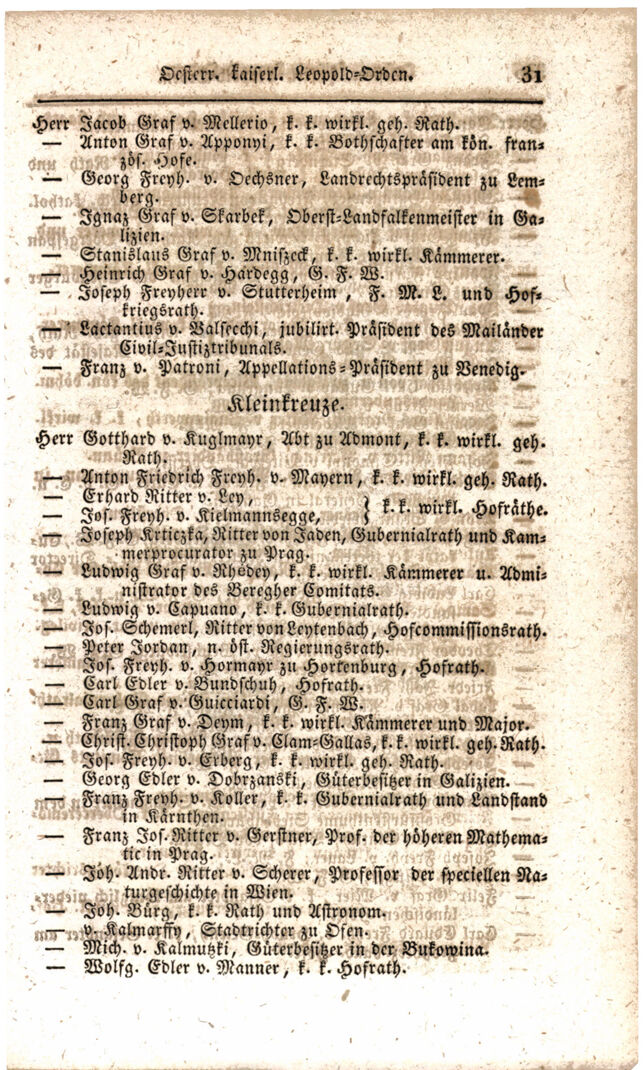 Oesterr. kaiserl. Leopold-Orden. 31
Herr Jacob Graf v. Mellerio, k. k. wirkl. geh. Rath.
— Anton Graf v. Apponyi, k. k. Bothschafter am kön. fran-
zös. Hofe.
— Georg Freyh. v. Oechsner, Landrechtspräsident zu Lem-
berg.
— Ignaz Graf v. Skarbek, Oberst-Landfalkenmeister in Ga-
lizien.
— Stanislaus Graf v. Mniszeck, k. k. wirkl. Kämmerer.
— Heinrich Graf v. Hardegg, G. F. W.
— Joseph Freyherr v. Stutterheim, F. M. L. und Hof-
kriegsrath.
— Lactantius v. Valsecchi, jubilirt. Präsident des Mailänder
Civil-Justiztribunals.
— Franz v. Patroni, Appellations-Präsident zu Venedig.
Kleinkreuze.
Herr Gotthard v. Kuglmayr, Abt zu Admont, k. k. wirkl. geh.
Rath.
— Anton Friedrich Freyh. v. Mayern, k. k. wirkl. geh. Rath.
— Erhard Ritter v. Ley,
— Jos. Freyh. v. Kielmannsegge, } k. k. wirkl. Hofräthe.
— Joseph Krticzka, Ritter von Jaden, Gubernialrath und Kam-
merprocurator zu Prag.
— Ludwig Graf v. Rhédey, k. k. wirkl. Kämmerer u. Admi-
nistrator des Beregher Comitats.
— Ludwig v. Capuano, k. k. Gubernialrath.
— Jos. Schemerl, Ritter von Leytenbach, Hofcommissionsrath.
— Peter Jordan, n. öst. Regierungsrath.
— Jos. Freyh. v. Hormayr zu Hortenburg, Hofrath.
— Carl Edler v. Bundschuh, Hofrath.
— Carl Graf v. Guicciardi, G. F. W.
— Franz Graf v. Deym, k. k. wirkl. Kämmerer und Major.
— Christ. Christoph Graf v. Clam-Gallas, k. k. wirkl. geh. Rath.
— Jos. Freyh. v. Erberg, k. k. wirkl. geh. Rath.
— Georg Edler v. Dobrzanski, Güterbesitzer in Galizien.
— Franz Freyh. v. Koller, k. k. Gubernialrath und Landstand
in Kärnthen.
— Franz Jos. Ritter v. Gerstner, Prof. der höheren Mathema-
tic in Prag.
— Joh. Andr. Ritter v. Scherer, Professor der speciellen Na-
turgeschichte in Wien.
— Joh. Bürg, k. k. Rath und Astronom.
— v. Kalmarffy, Stadtrichter zu Ofen.
— Mich. v. Kalmutzki, Güterbesitzer in der Bukowina.
— Wolfg. Edler v. Manner, k. k. Hofrath.